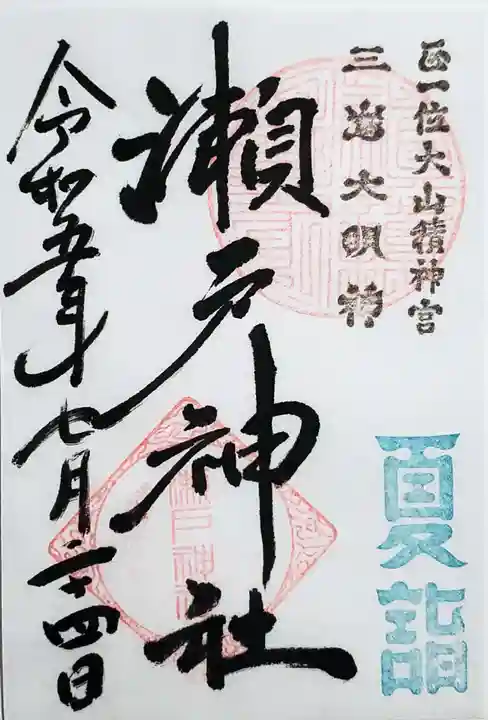 正一位大山積神宮
三島大明神
夏詣
瀬戸神社
令和五年七月二十四日
瀬戸神社